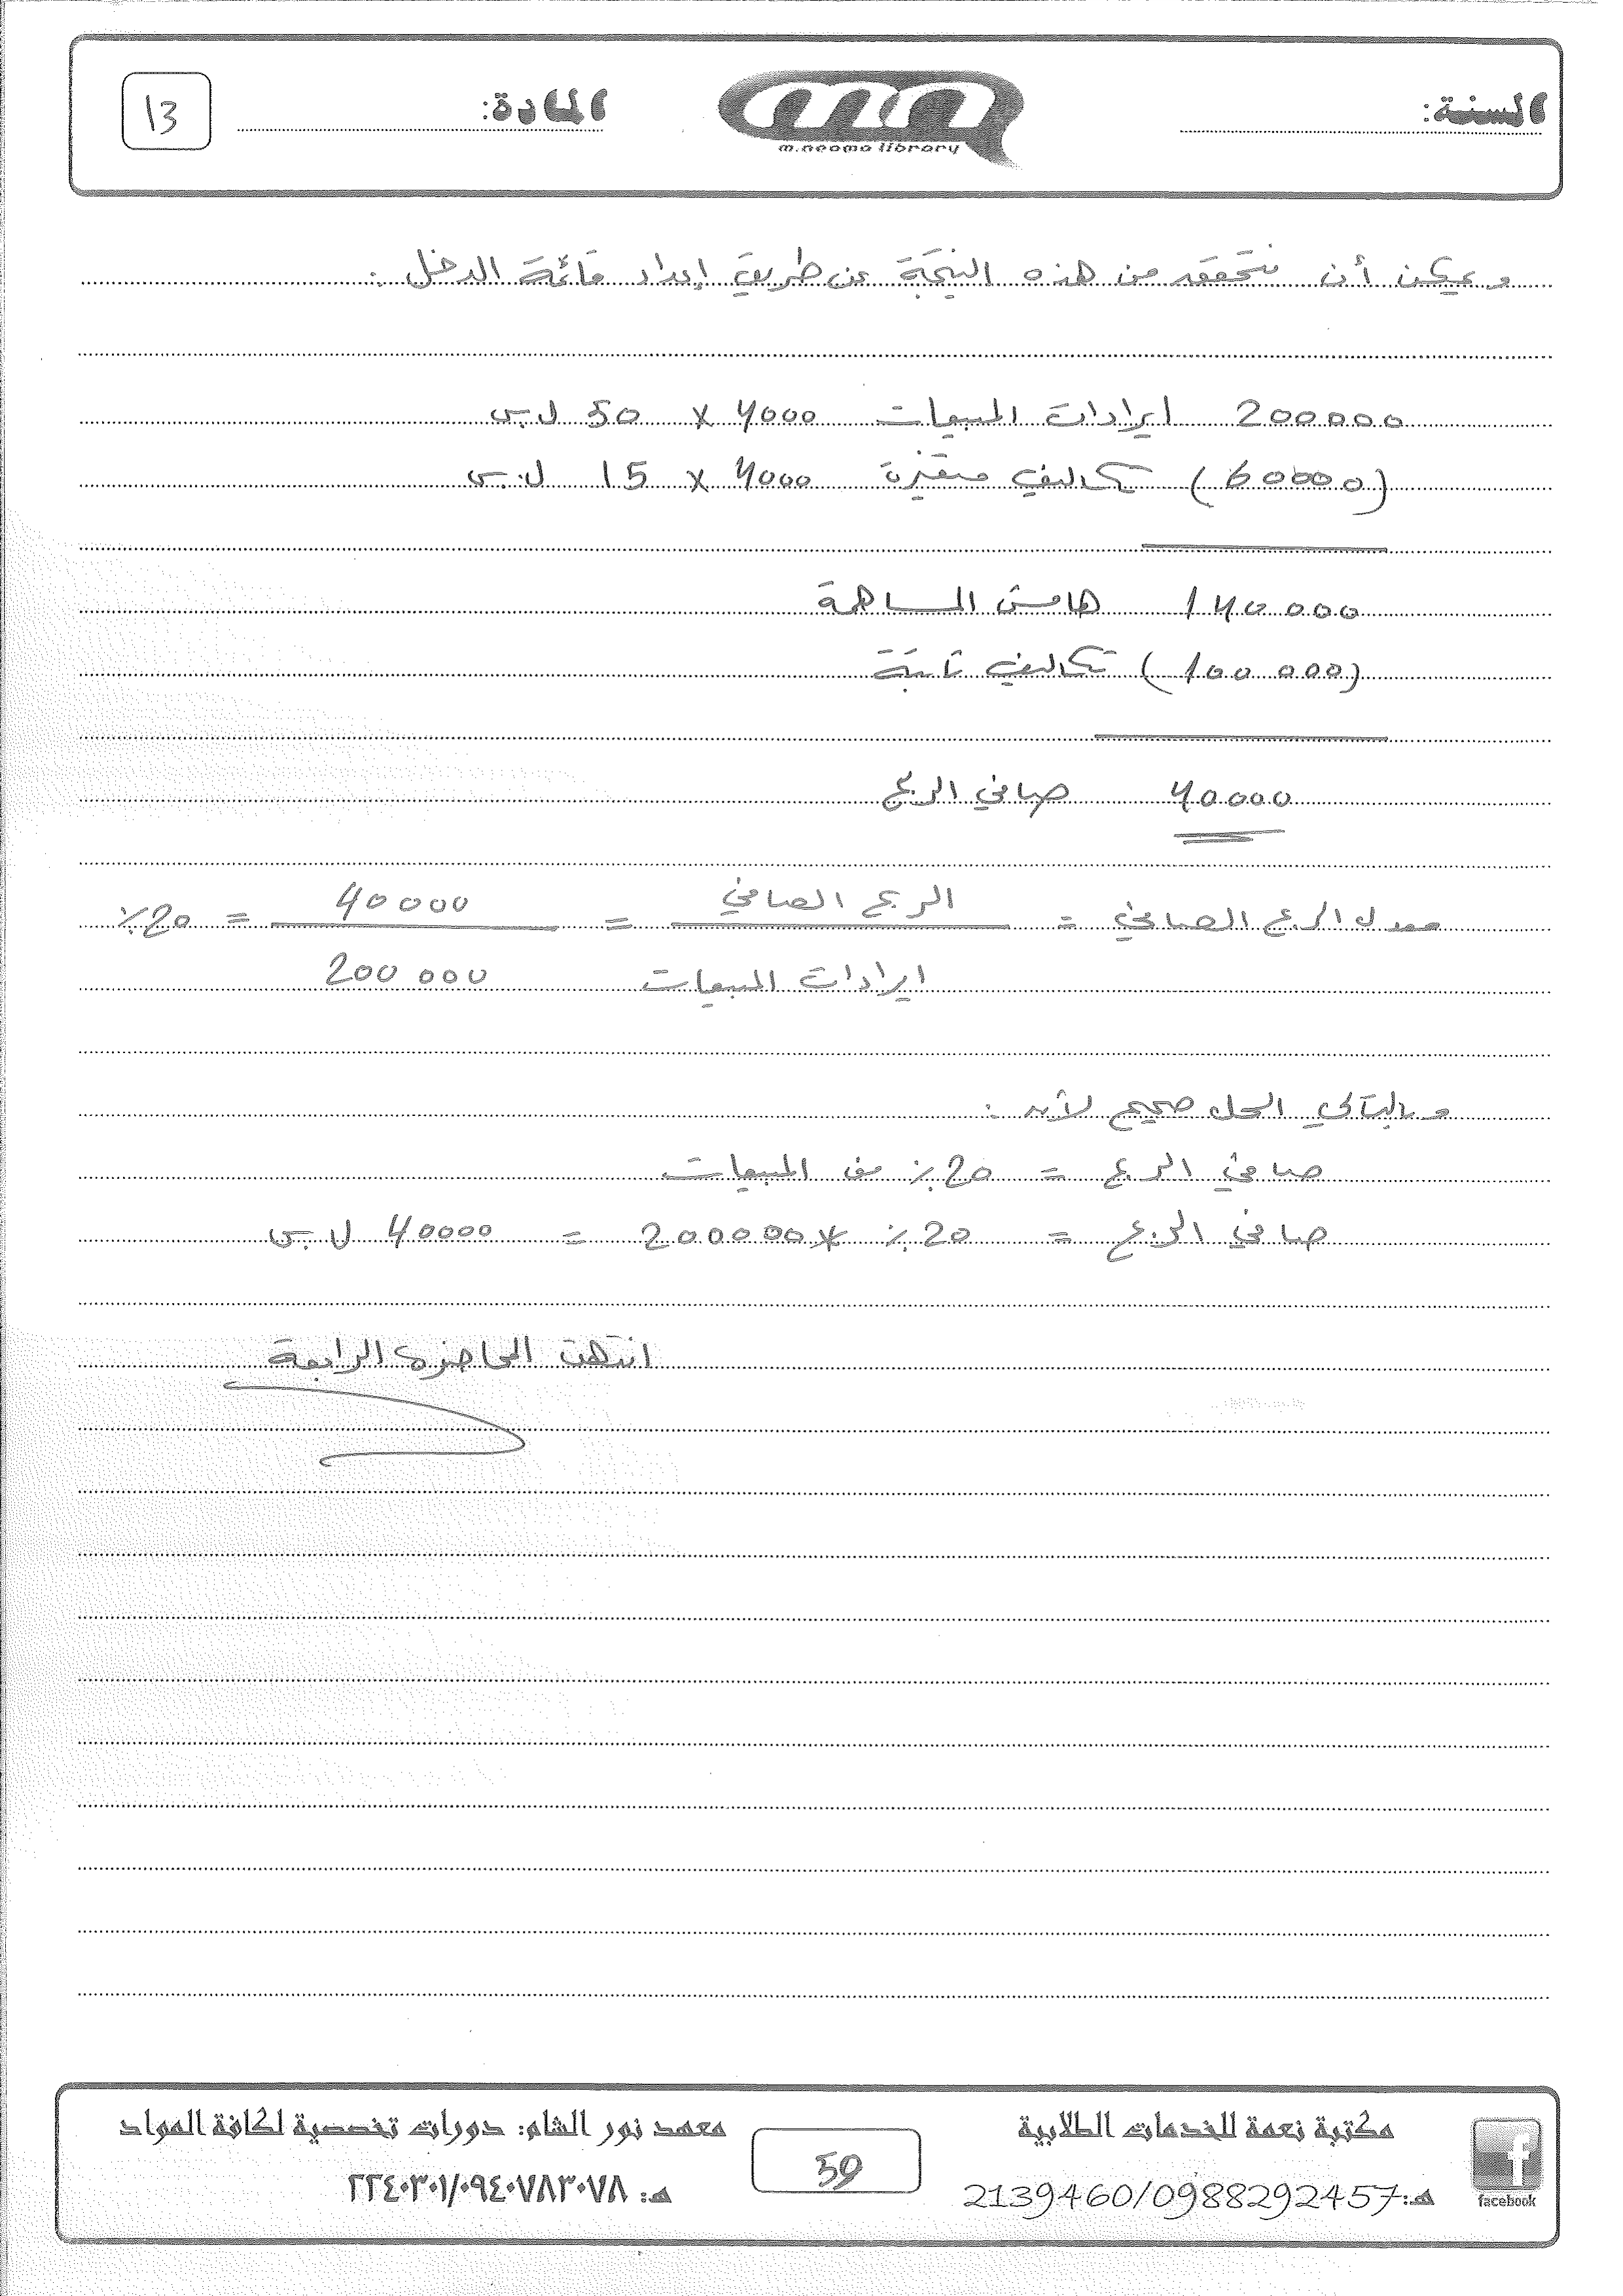 السنة:
m.neoma library
المادة:
13
و يمكن أن نتحقق من هذه النتيجة عن طريق إعداد قائمة الدخل :
200000 ايرادات المبيعات 4000 × 50 ل.س
(60000) تكاليف متغيرة 4000 × 15 ل.س
140000 هامش المساهمة
(100000) تكاليف ثابتة
40000 صافي الربح
معدل الربح الصافي = الربح الصافي / ايرادات المبيعات = 40000 / 200000 = 20٪
و بالتالي الحل صحيح لأنه :
صافي الربح = 20٪ من المبيعات
صافي الربح = 20٪ * 200000 = 40000 ل.س
انتهت المحاضرة الرابعة
مكتبة نعمة للخدمات الطلابية
هـ: 2139460/0988292457
facebook
59
معهد نور الشام: دورات تخصصية لكافة المواد
هـ: ٢٢٤٠٣٠١/٠٩٤٠٧٨٣٠٧٨